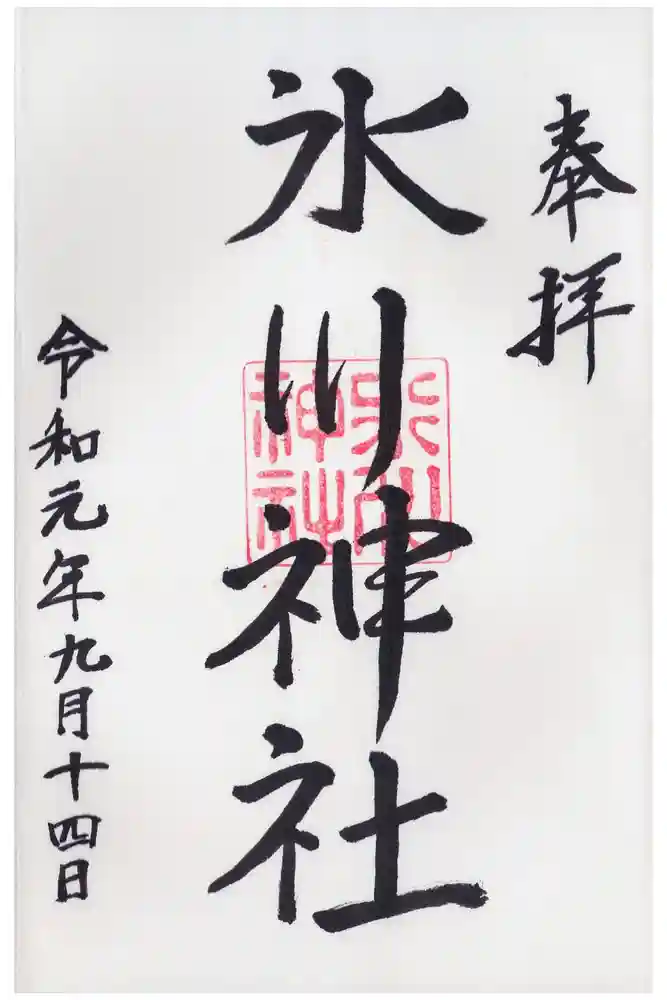 奉拝
氷川神社
氷川
神社
令和元年九月十四日